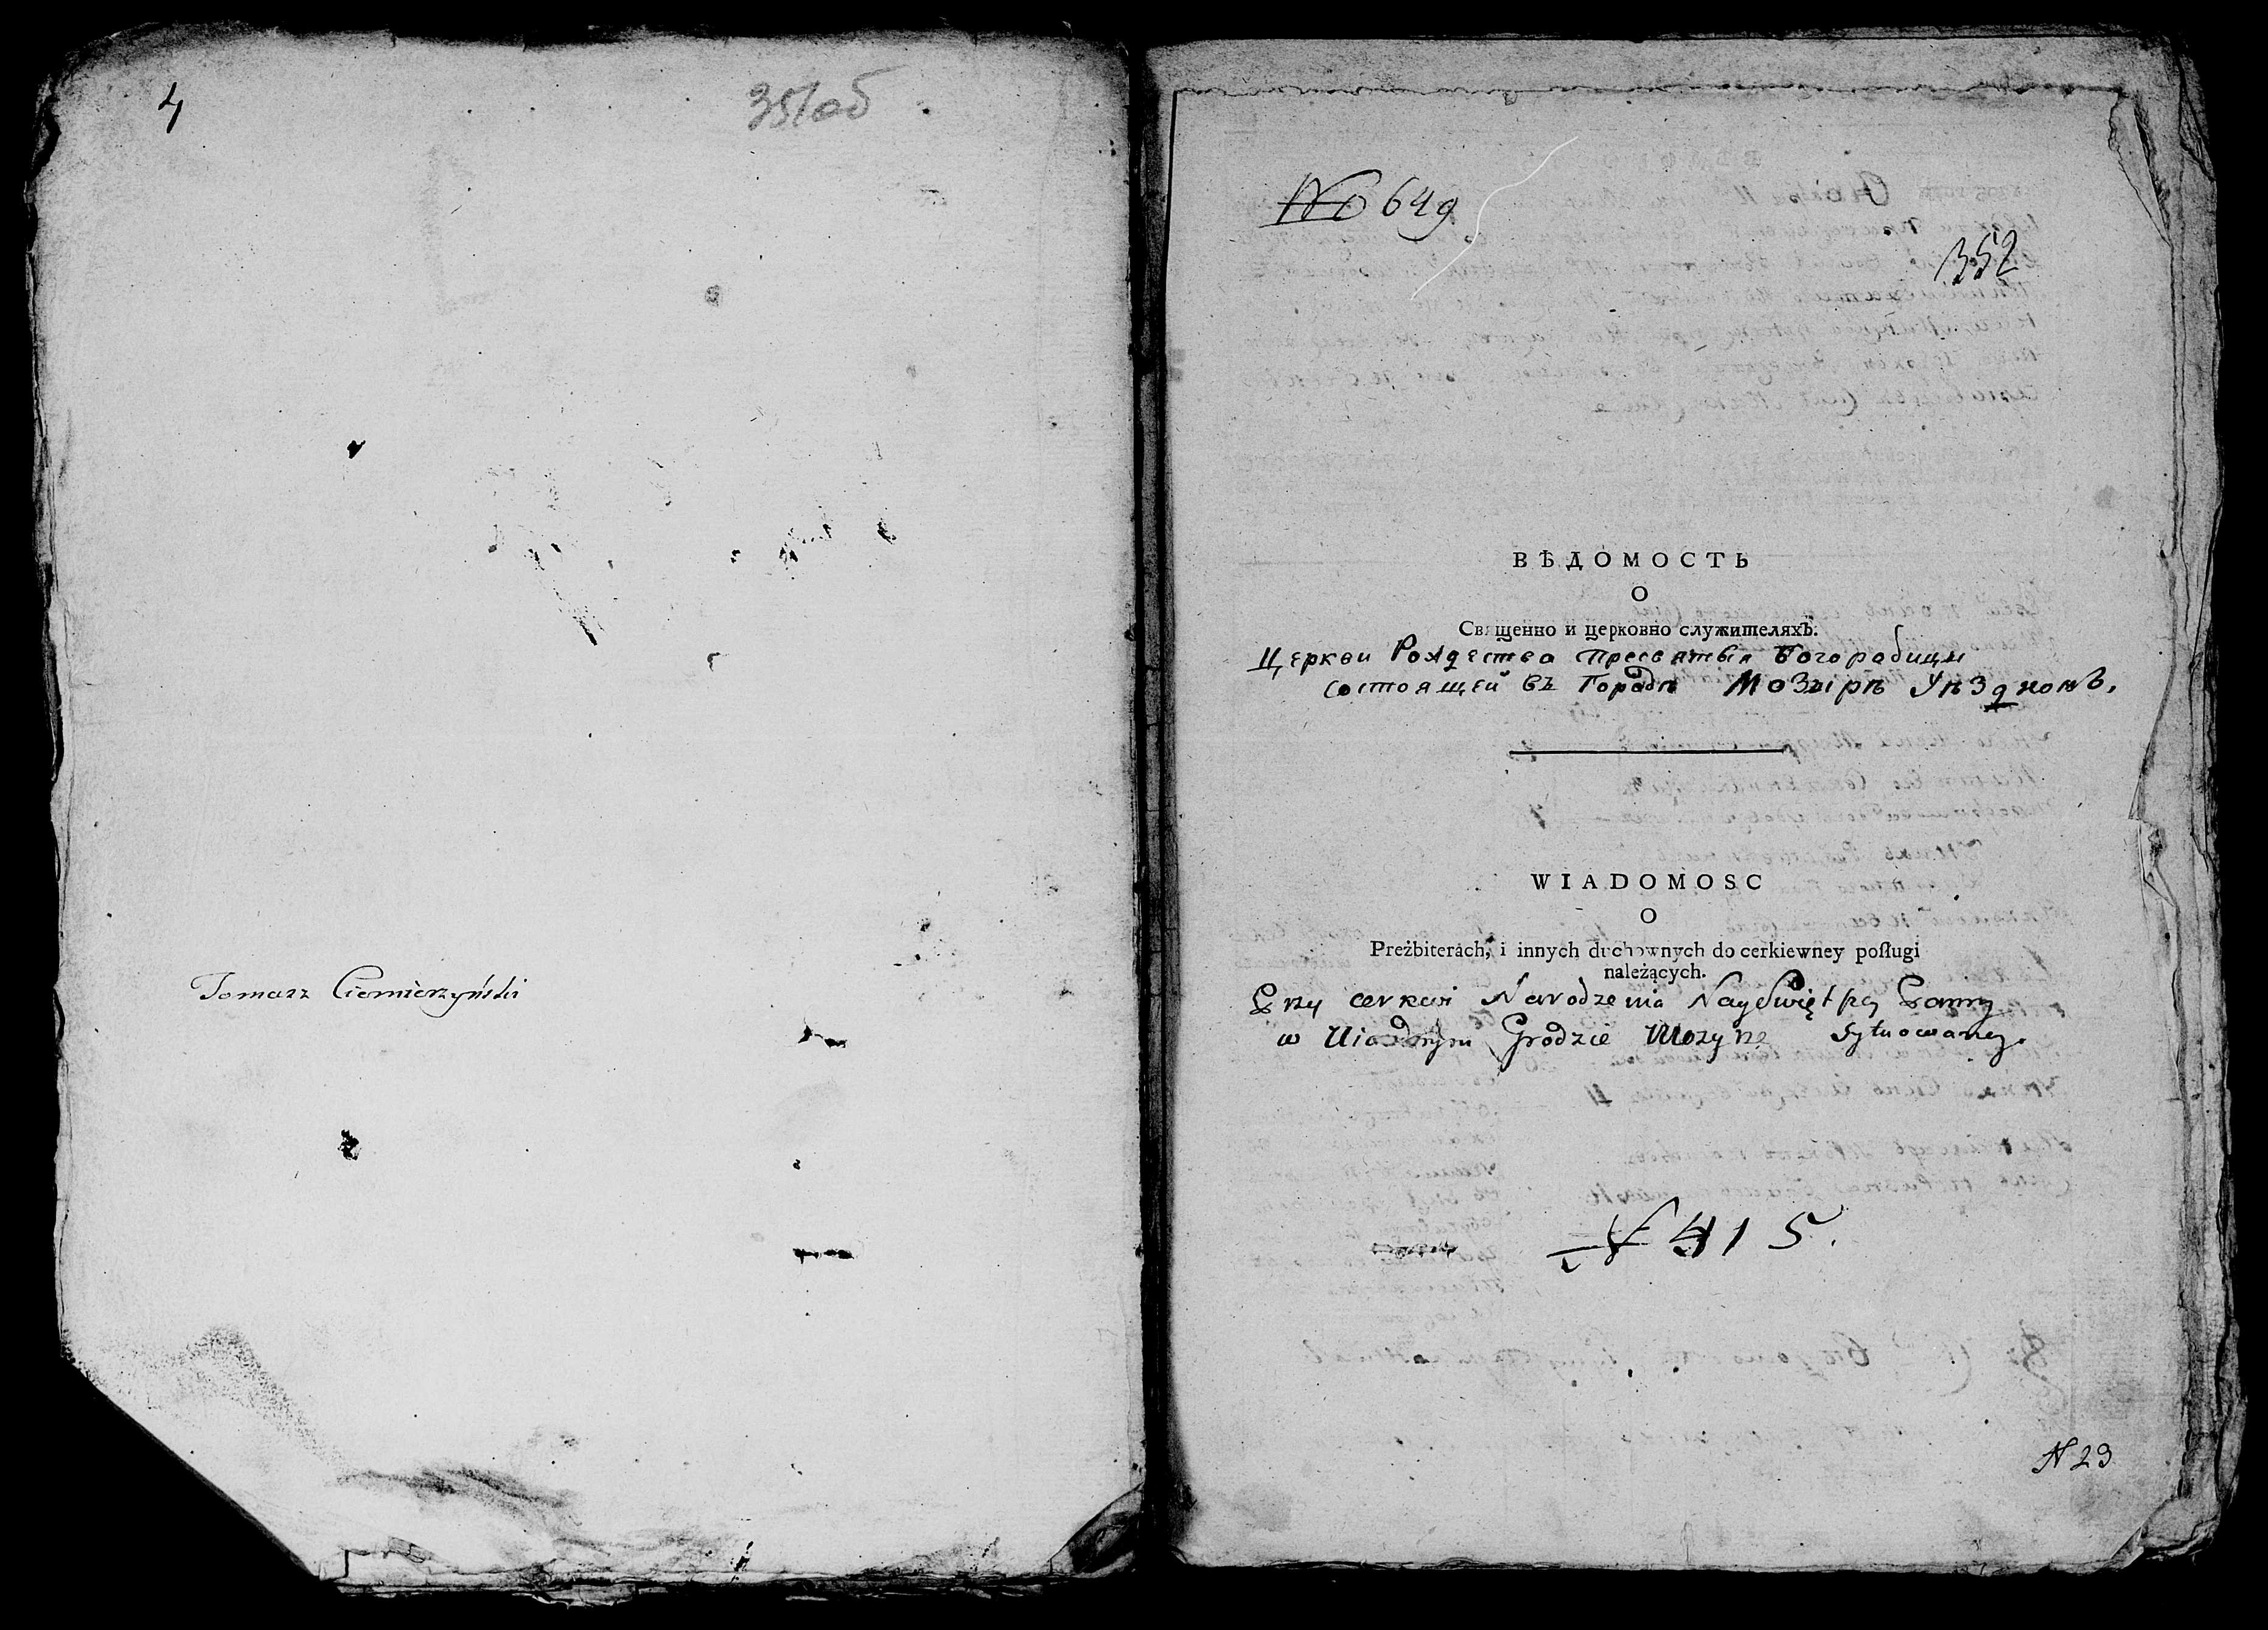 4
351об
Tomasz Ciemierzyński
No 649
352
ВѢДОМОСТЬ
О
Священно и церковно служителяхъ.
Церкви Рождества Пресвятыя Богородицы
состоящей въ Городѣ Мозырѣ Уѣздномъ.
WIADOMOSC
O
Preżbiterach, i innych duchownych do cerkiewney posługi
należących.
Przy cerkwi Narodzenia Nayświętszey Panny
w Uiazdnym Grodzie Mozyrze sytuowaney.
№ 415.
N 23